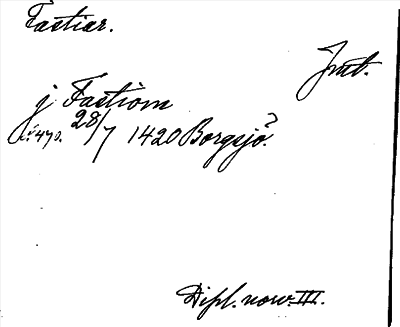 Fastiar.
Jmt.
j Fastiom
28/7 1420 Borgsjö?
Dipl. norv. III.